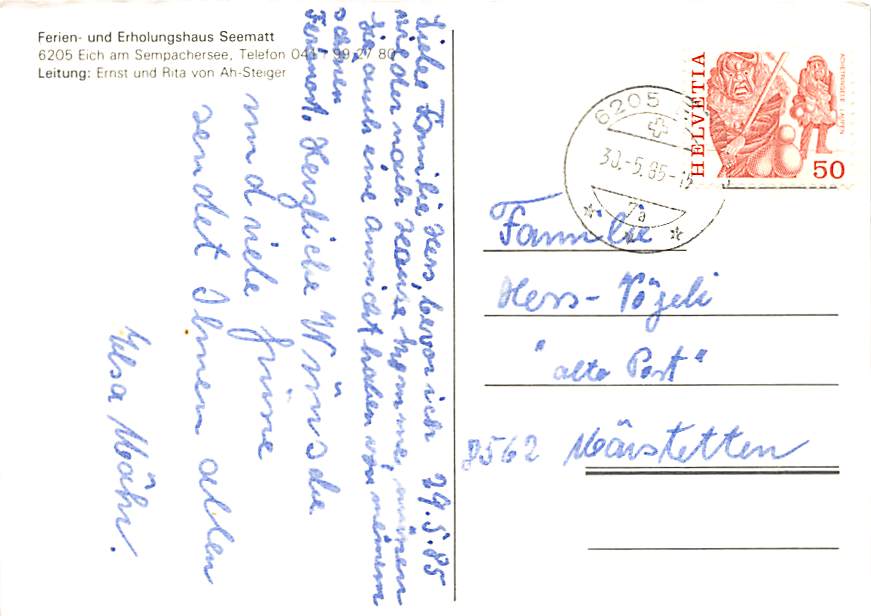 Ferien- und Erholungshaus Seematt
6205 Eich am Sempachersee, Telefon 041 / 99 27 80
Leitung: Ernst und Rita von Ah-Steiger
29.5.85
Liebe Familie Hess, bevor ich
wieder nach Hause komme, müssen
Sie auch eine Ansicht haben von meinem
schönen
Ferienort. Herzliche Wünsche
und viele Grüsse
sendet Ihnen allen
Elsa Mähr.
HELVETIA
ACHETRINGELE LAUPEN
50
6205
30.-5.85-15
7a
Familie
Hess-Vögeli
"alte Post"
8562 Märstetten